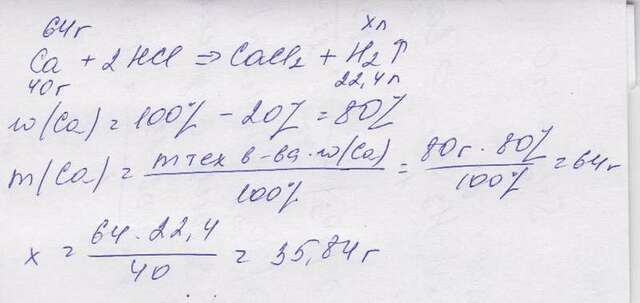 64г хл
Ca + 2HCl ⇒ CaCl2 + H2↑
40г 22,4л
w(Ca) = 100% - 20% = 80%
m(Ca) = mтех в-ва·w(Ca) / 100% = 80г·80% / 100% = 64г
x = 64·22,4 / 40 = 35,84г